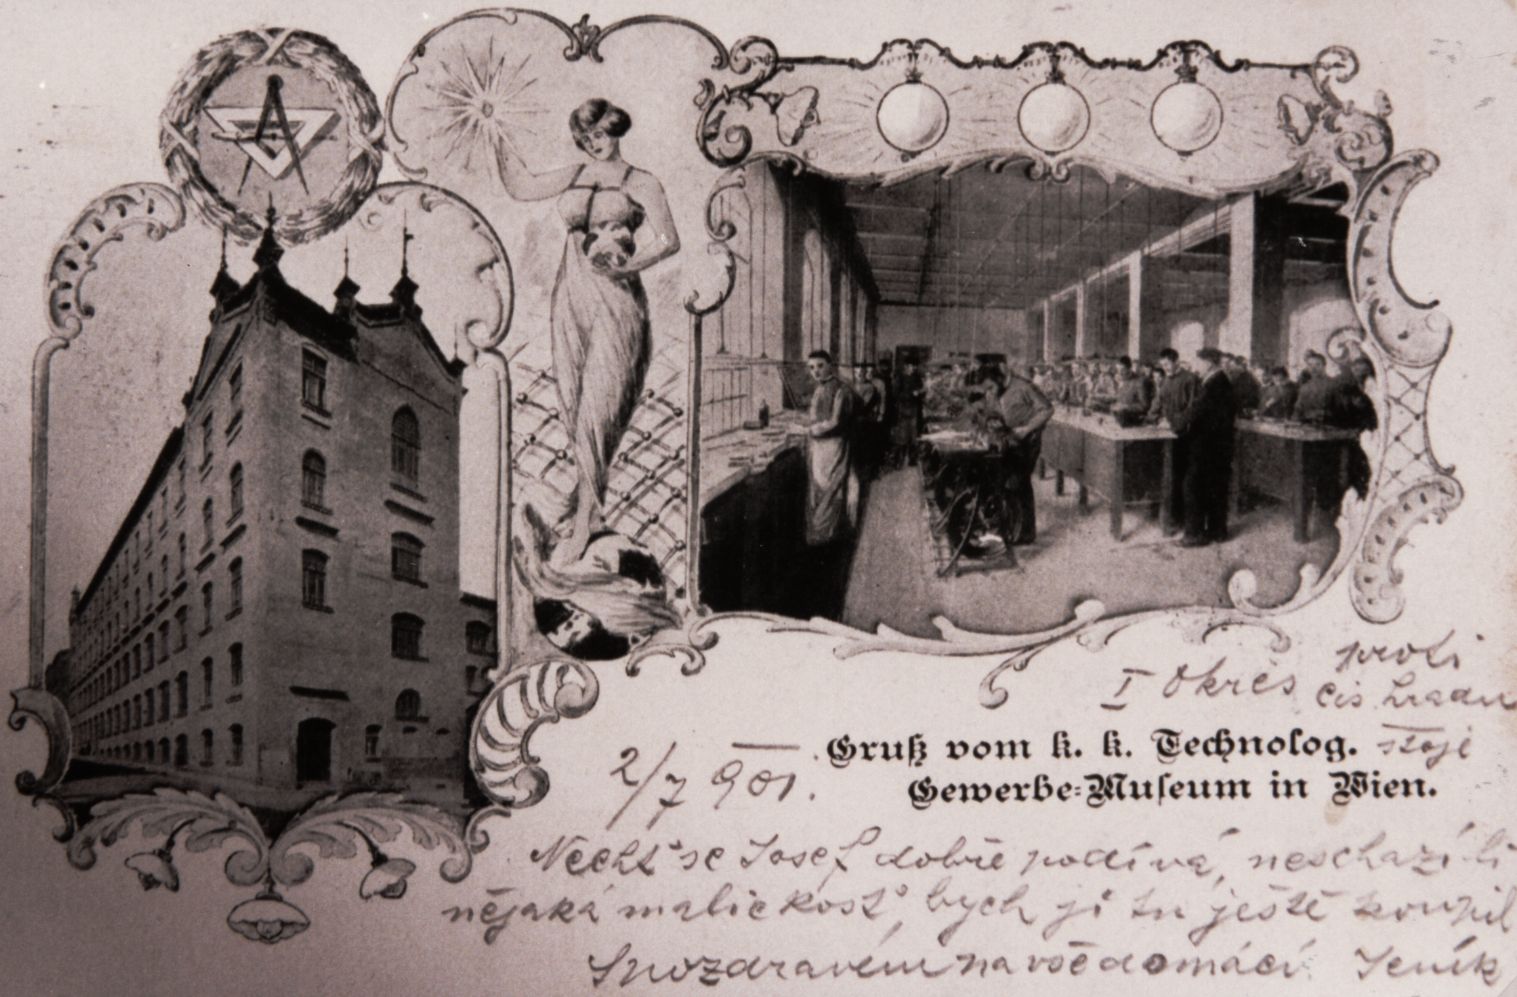 I Okres proti
čís. hradu
stojí
Gruß vom k. k. Technolog.
Gewerbe-Museum in Wien.
2/7 901.
Nechť se Josef dobře podívá, neschazí-li
nějaká maličkosť, bych jí tu ještě koupil
S pozdravém na vše domácí. Jeník